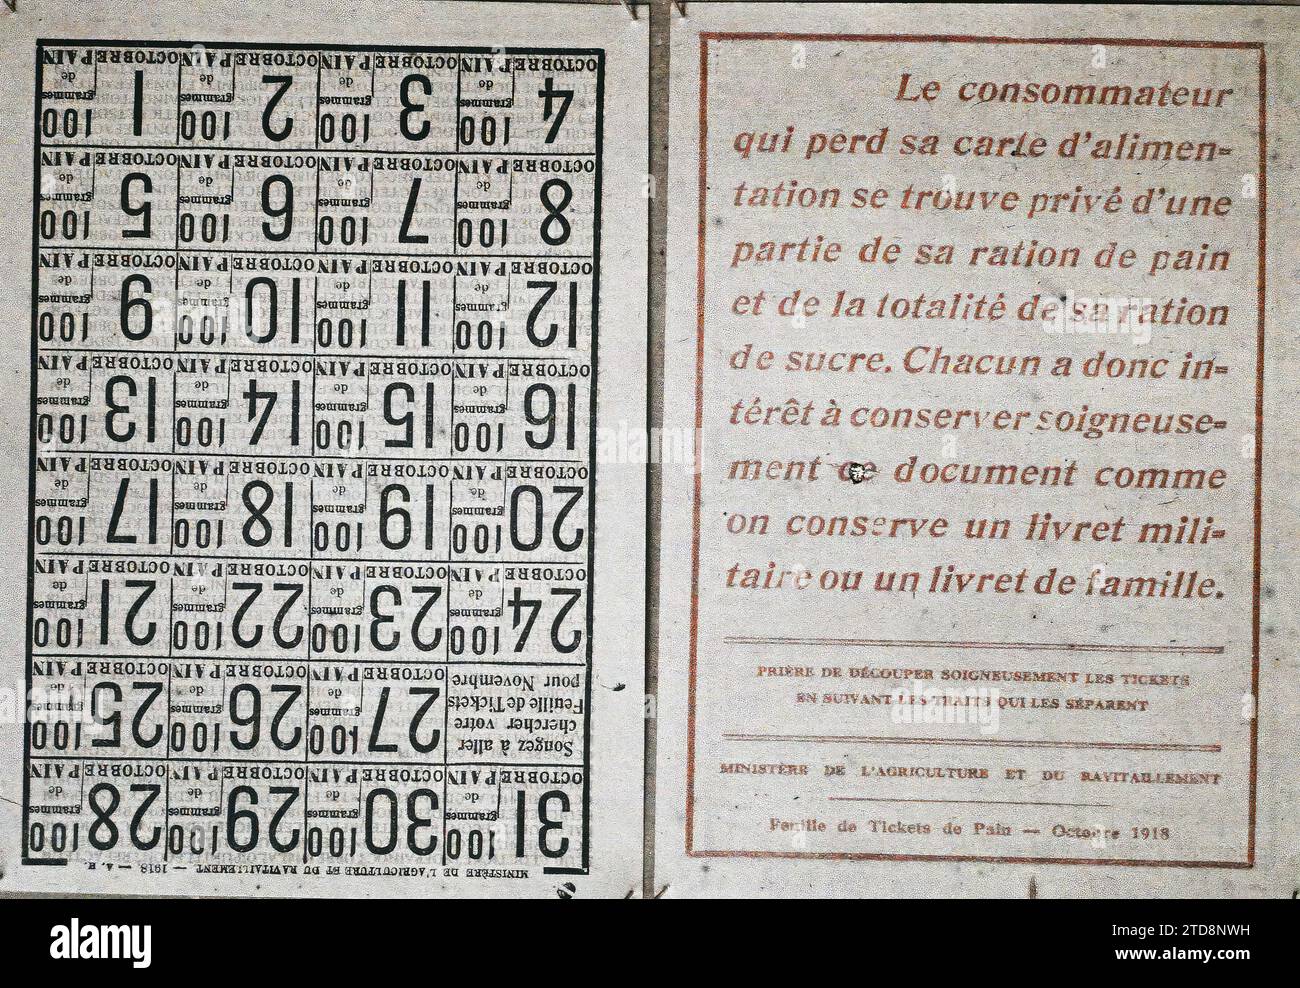 MINISTÈRE DE L'AGRICULTURE ET DU RAVITAILLEMENT. — 1918. — A. H.
31 100 30 100 29 100 28 100
grammes grammes grammes grammes
de de de de
OCTOBRE PAIN OCTOBRE PAIN OCTOBRE PAIN OCTOBRE PAIN
Songez à aller
chercher votre
Feuille de Tickets
pour Novembre
27 100 26 100 25 100
grammes grammes grammes
de de de
OCTOBRE PAIN OCTOBRE PAIN OCTOBRE PAIN
24 100 23 100 22 100 21 100
grammes grammes grammes grammes
de de de de
OCTOBRE PAIN OCTOBRE PAIN OCTOBRE PAIN OCTOBRE PAIN
20 100 19 100 18 100 17 100
grammes grammes grammes grammes
de de de de
OCTOBRE PAIN OCTOBRE PAIN OCTOBRE PAIN OCTOBRE PAIN
16 100 15 100 14 100 13 100
grammes grammes grammes grammes
de de de de
OCTOBRE PAIN OCTOBRE PAIN OCTOBRE PAIN OCTOBRE PAIN
12 100 11 100 10 100 9 100
grammes grammes grammes grammes
de de de de
OCTOBRE PAIN OCTOBRE PAIN OCTOBRE PAIN OCTOBRE PAIN
8 100 7 100 6 100 5 100
grammes grammes grammes grammes
de de de de
OCTOBRE PAIN OCTOBRE PAIN OCTOBRE PAIN OCTOBRE PAIN
4 100 3 100 2 100 1 100
grammes grammes grammes grammes
de de de de
OCTOBRE PAIN OCTOBRE PAIN OCTOBRE PAIN OCTOBRE PAIN
Le consommateur
qui perd sa carte d'alimen-
tation se trouve privé d'une
partie de sa ration de pain
et de la totalité de sa ration
de sucre. Chacun a donc in-
térêt à conserver soigneuse-
ment ce document comme
on conserve un livret mili-
taire ou un livret de famille.
PRIÈRE DE DÉCOUPER SOIGNEUSEMENT LES TICKETS
EN SUIVANT LES TRAITS QUI LES SÉPARENT
MINISTÈRE DE L'AGRICULTURE ET DU RAVITAILLEMENT
Feuille de Tickets de Pain — Octobre 1918
alamy
Image ID: 2TD8NWH
www.alamy.com